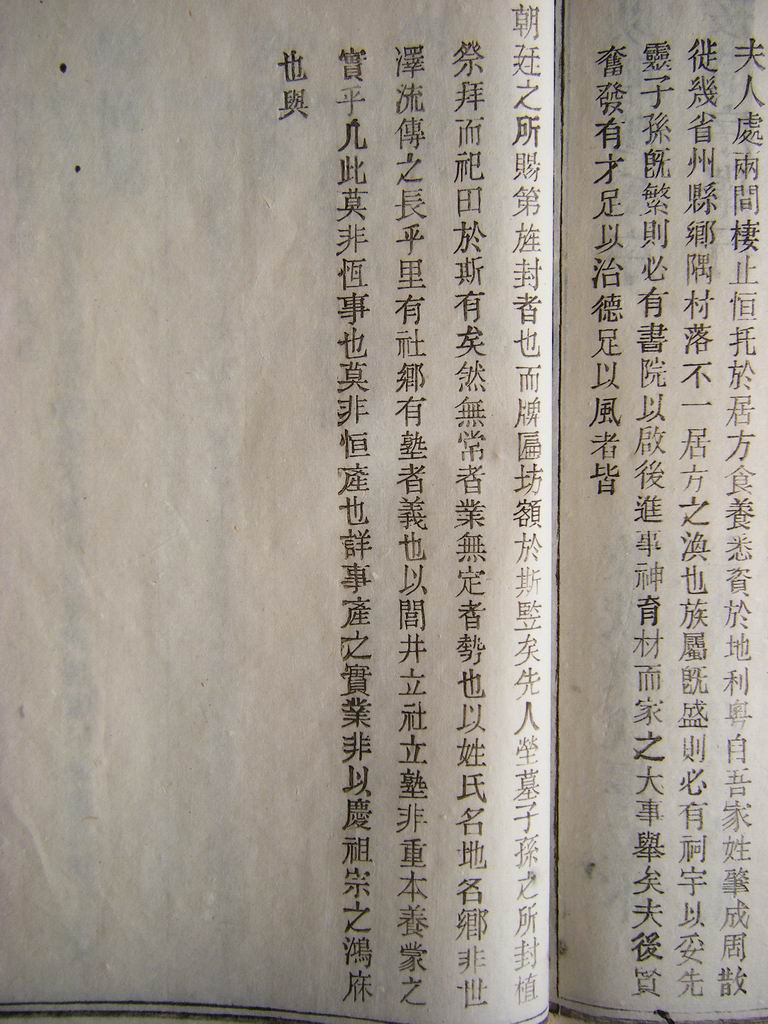 夫人處兩間棲止恒托於居方食養悉資於地利粵自吾家姓肇成周散
徙幾省州縣鄉隅村落不一居方之渙也族屬既盛則必有祠宇以妥先
靈子孫既繁則必有書院以啟後進事神育材而家之大事舉矣夫後賢
奮發有才足以治德足以風者皆
朝廷之所賜第旌封者也而牌匾坊額於斯竪矣先人塋墓子孫之所封植
祭拜而祀田於斯有矣然無常者業無定者勢也以姓氏名地名鄉非世
澤流傳之長乎里有社鄉有塾者義也以閭井立社立塾非重本養蒙之
實乎凡此莫非恆事也莫非恒產也詳事產之實業非以慶祖宗之鴻庥
也與